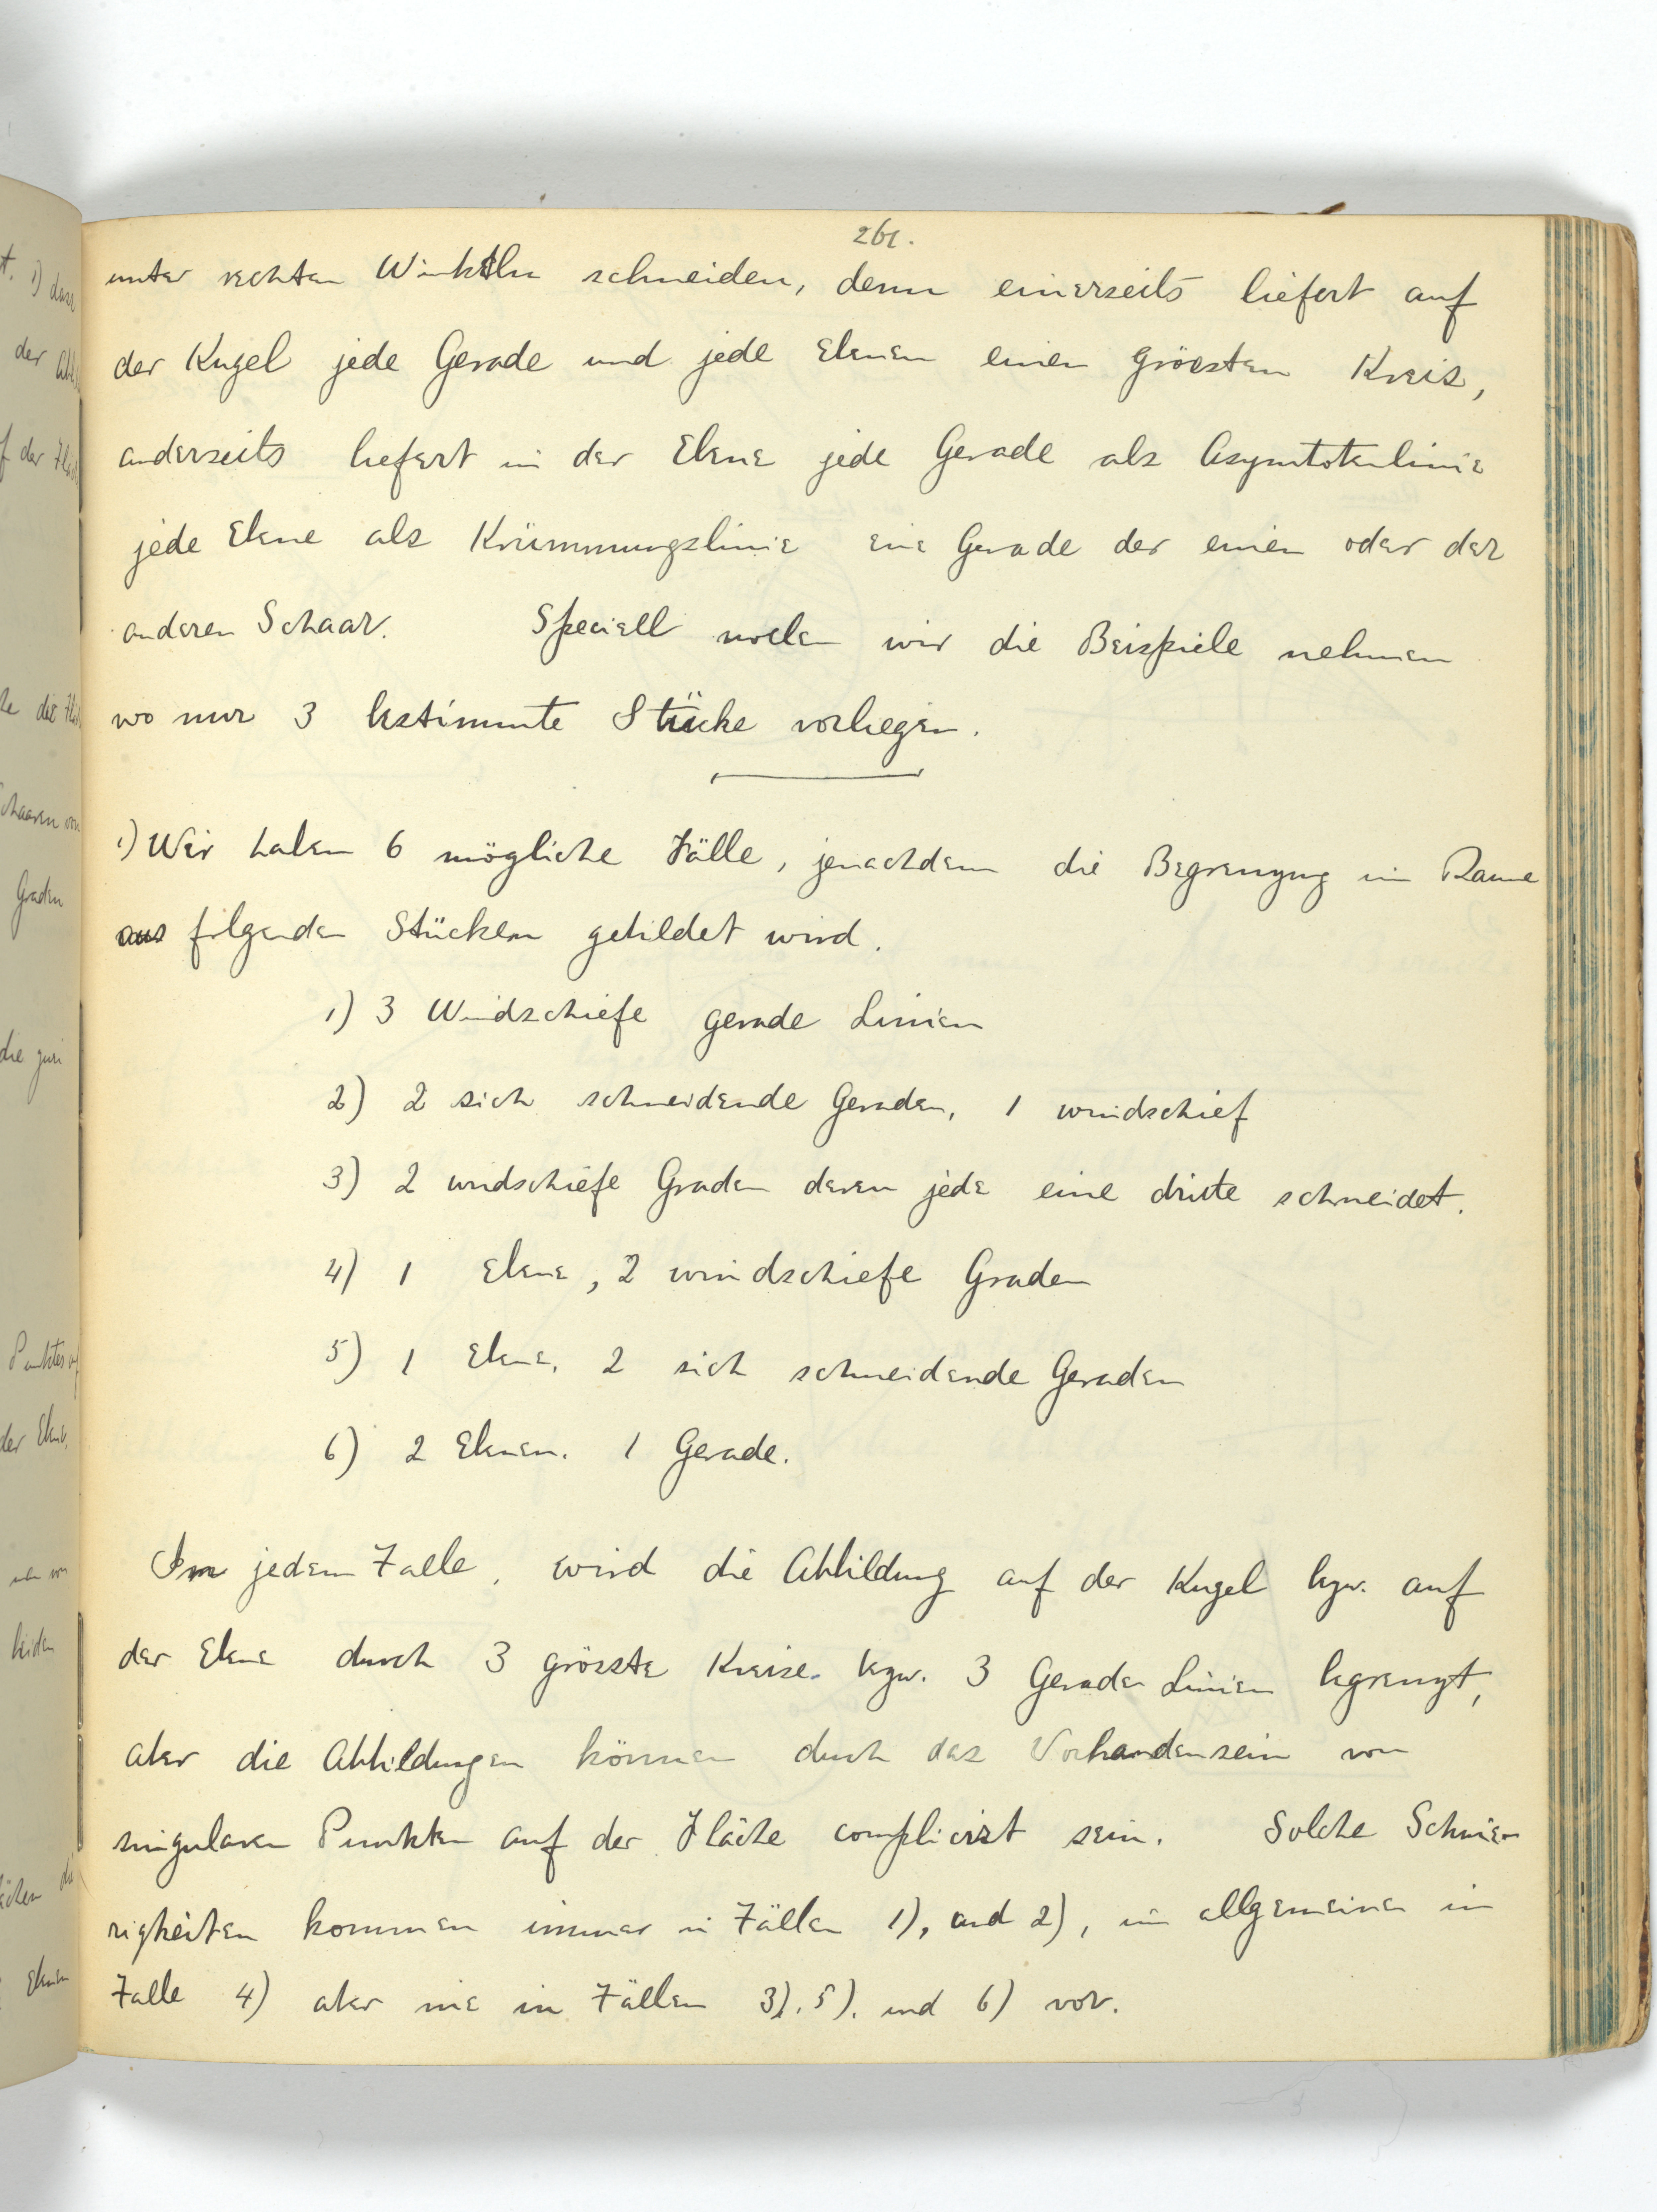 261.
unter rechten Winkeln schneiden, denn einerseits liefert auf
der Kugel jede Gerade und jede Ebenen einen grössten Kreis,
anderseits liefert in der Ebene jede Gerade als Asymtotenlinie
jede Ebene als Krümmungslinie eine Gerade der einen oder der
anderen Schaar. Speciell wollen wir die Beispiele nehmen
wo nur 3 bestimmte Stücke vorliegen.
1) Wir haben 6 mögliche Fälle, jenachdem die Begrenzung im Raume
aus folgenden Stücken gebildet wird.
1) 3 Windschiefe gerade Linien
2) 2 sich schneidende Geraden, 1 windschief
3) 2 windschiefe Graden deren jede eine dritte schneidet.
4) 1 Ebene, 2 windschiefe Graden
5) 1 Ebene, 2 sich schneidende Geraden
6) 2 Ebenen. 1 Gerade.
Im jedem Falle, wird die Abbildung auf der Kugel bzw. auf
der Ebene durch 3 grösste Kreise bzw. 3 Gerade Linien begrenzt,
aber die Abbildungen können durch das Vorhandensein von
singularen Punkten auf der Fläche complicirt sein. Solche Schwie-
rigkeiten kommen immer in Fällen 1), und 2), im allgemeinen in
Falle 4) aber nie in Fällen 3), 5), und 6) vor.